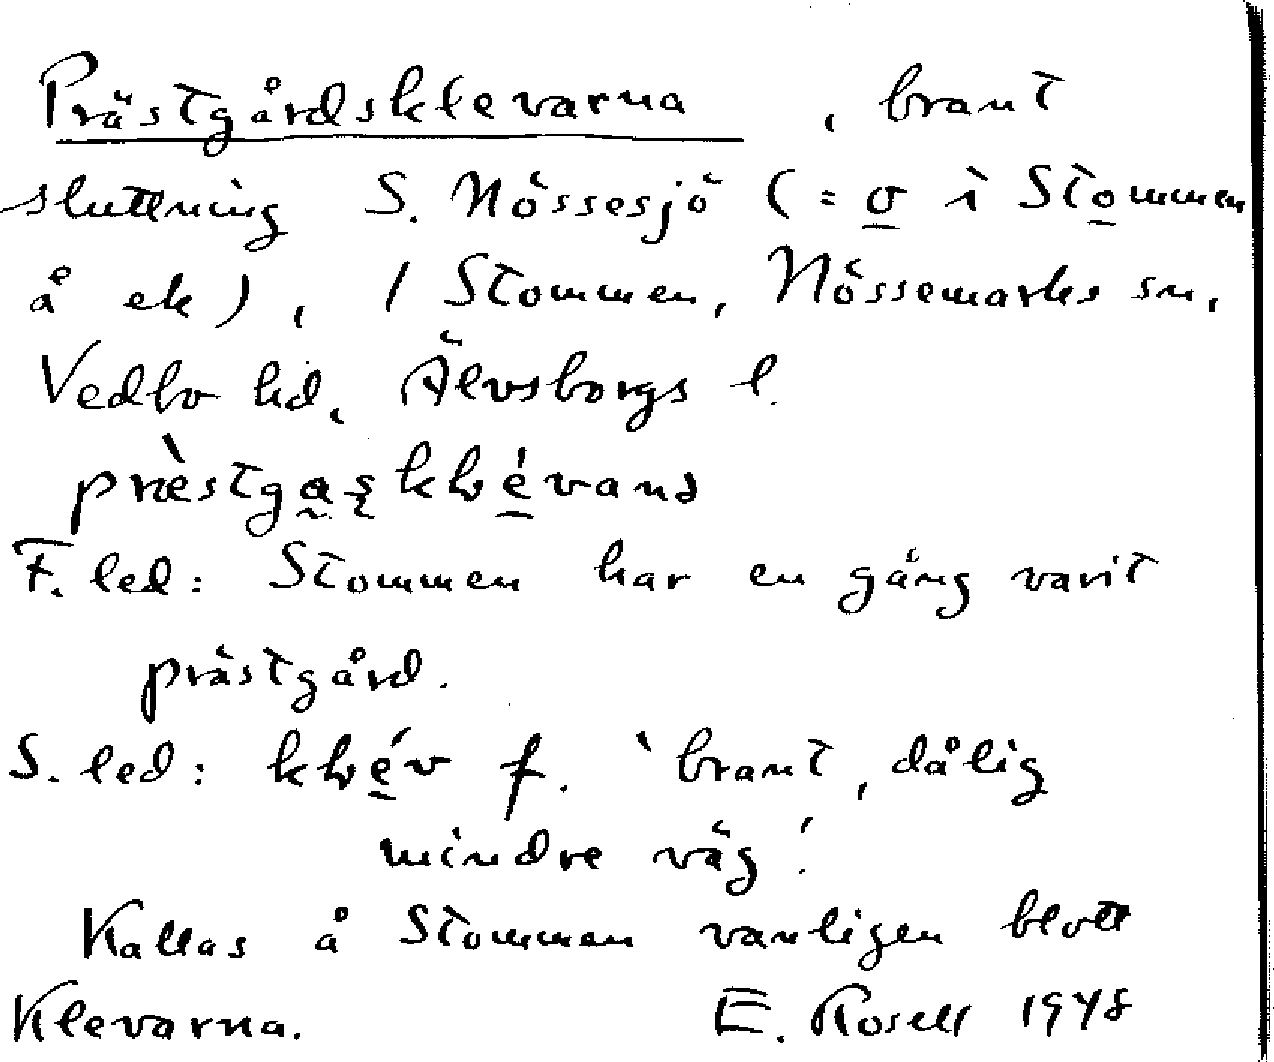 Prästgårdsklevarna, brant
sluttning S. Nössesjö (= o i Stommen
å ek), / Stommen, Nössemarks sn,
Vedbo hd, Älvsborgs l.
F. led: Stommen har en gång varit
prästgård.
S. led: f. 'brant, dålig
mindre väg'.
Kallas å Stommen vanligen blott
Klevarna. E. Rosell 1948